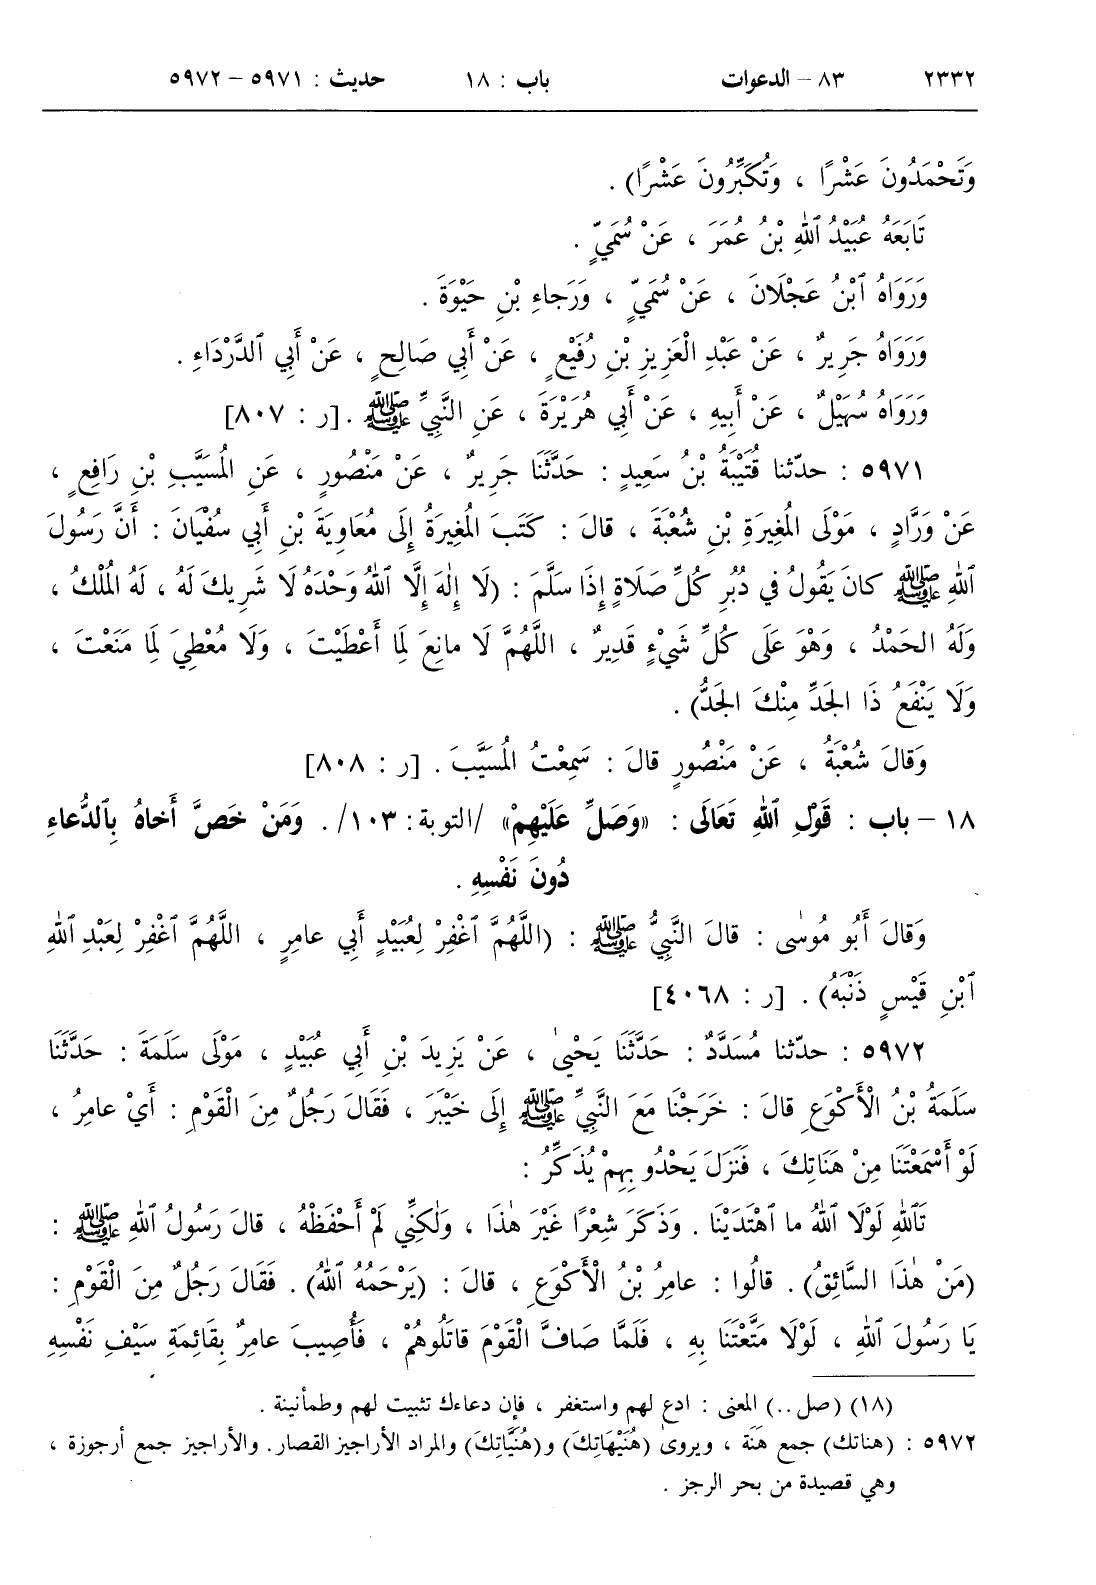 ٢٣٣٢ ٨٣ – الدعوات باب : ١٨ حديث : ٥٩٧١ – ٥٩٧٢
وَتَحْمَدُونَ عَشْرًا ، وَتُكَبِّرُونَ عَشْرًا) .
تَابَعَهُ عُبَيْدُ ٱللهِ بْنُ عُمَرَ ، عَنْ سُمَيٍّ .
وَرَوَاهُ ٱبْنُ عَجْلَانَ ، عَنْ سُمَيٍّ ، وَرَجاءِ بْنِ حَيْوَةَ .
وَرَوَاهُ جَرِيرٌ ، عَنْ عَبْدِ الْعَزِيزِ بْنِ رُفَيْعٍ ، عَنْ أَبِي صَالِحٍ ، عَنْ أَبِي ٱلدَّرْدَاءِ .
وَرَوَاهُ سُهَيْلٌ ، عَنْ أَبِيهِ ، عَنْ أَبِي هُرَيْرَةَ ، عَنِ النَّبِيِّ ﷺ . [ر : ٨٠٧]
٥٩٧١ : حدّثنا قُتَيْبَةُ بْنُ سَعِيدٍ : حَدَّثَنَا جَرِيرٌ ، عَنْ مَنْصُورٍ ، عَنِ الْمُسَيَّبِ بْنِ رَافِعٍ ،
عَنْ وَرَّادٍ ، مَوْلَى الْمُغِيرَةِ بْنِ شُعْبَةَ ، قالَ : كَتَبَ الْمُغِيرَةُ إِلَى مُعَاوِيَةَ بْنِ أَبِي سُفْيَانَ : أَنَّ رَسُولَ
ٱللهِ ﷺ كانَ يَقُولُ فِي دُبُرِ كُلِّ صَلَاةٍ إِذَا سَلَّمَ : (لَا إِلٰهَ إِلَّا ٱللهُ وَحْدَهُ لَا شَرِيكَ لَهُ ، لَهُ الْمُلْكُ ،
وَلَهُ الحَمْدُ ، وَهْوَ عَلَى كُلِّ شَيْءٍ قَدِيرٌ ، اللَّهُمَّ لَا مانِعَ لِمَا أَعْطَيْتَ ، وَلَا مُعْطِيَ لِمَا مَنَعْتَ ،
وَلَا يَنْفَعُ ذَا الجَدِّ مِنْكَ الجَدُّ) .
وَقالَ شُعْبَةُ ، عَنْ مَنْصُورٍ قالَ : سَمِعْتُ الْمُسَيَّبَ . [ر : ٨٠٨]
١٨ – باب : قَوْلِ ٱللهِ تَعَالَى : «وَصَلِّ عَلَيْهِمْ» /التوبة: ١٠٣/. وَمَنْ خَصَّ أَخاهُ بِٱلدُّعاءِ
دُونَ نَفْسِهِ .
وَقالَ أَبُو مُوسٰى : قالَ النَّبِيُّ ﷺ : (اللَّهُمَّ ٱغْفِرْ لِعُبَيْدٍ أَبِي عامِرٍ ، اللَّهُمَّ ٱغْفِرْ لِعَبْدِ ٱللهِ
ٱبْنِ قَيْسٍ ذَنْبَهُ) . [ر : ٤٠٦٨]
٥٩٧٢ : حدّثنا مُسَدَّدٌ : حَدَّثَنَا يَحْيىٰ ، عَنْ يَزِيدَ بْنِ أَبِي عُبَيْدٍ ، مَوْلَى سَلَمَةَ : حَدَّثَنَا
سَلَمَةُ بْنُ الْأَكْوَعِ قالَ : خَرَجْنَا مَعَ النَّبِيِّ ﷺ إِلَى خَيْبَرَ ، فَقَالَ رَجُلٌ مِنَ الْقَوْمِ : أَيْ عامِرُ ،
لَوْ أَسْمَعْتَنَا مِنْ هَنَاتِكَ ، فَنَزَلَ يَحْدُو بِهِمْ يُذَكِّرُ :
تَٱللهِ لَوْلَا ٱللهُ ما ٱهْتَدَيْنَا . وَذَكَرَ شِعْرًا غَيْرَ هٰذَا ، وَلٰكِنِّي لَمْ أَحْفَظْهُ ، قالَ رَسُولُ ٱللهِ ﷺ :
(مَنْ هٰذَا السَّائِقُ) . قالُوا : عامِرُ بْنُ الْأَكْوَعِ ، قالَ : (يَرْحَمُهُ ٱللهُ) . فَقَالَ رَجُلٌ مِنَ الْقَوْمِ :
يَا رَسُولَ ٱللهِ ، لَوْلَا مَتَّعْتَنَا بِهِ ، فَلَمَّا صَافَّ الْقَوْمَ قاتَلُوهُمْ ، فَأُصِيبَ عامِرٌ بِقَائِمَةِ سَيْفِ نَفْسِهِ
(١٨) (صل..) المعنى : ادع لهم واستغفر ، فإن دعاءك تثبيت لهم وطمأنينة .
٥٩٧٢ : (هناتك) جمع هَنَة ، ويروى (هُنَيْهَاتِكَ) و(هُنَيَّاتِكَ) والمراد الأراجيز القصار. والأراجيز جمع أرجوزة ،
وهي قصيدة من بحر الرجز .